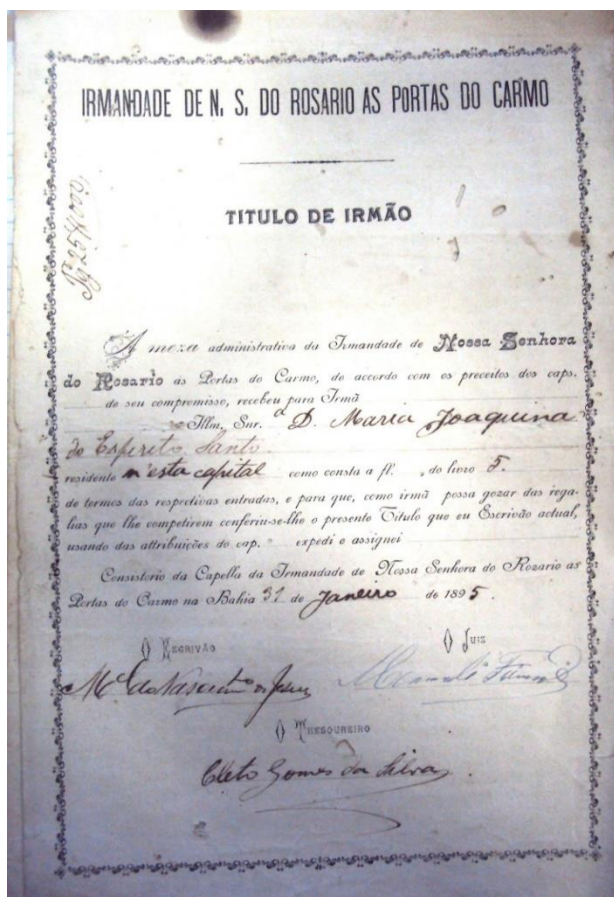 IRMANDADE DE N. S. DO ROSARIO AS PORTAS DO CARMO
TITULO DE IRMÃO
A meza administrativa da Irmandade de Nossa Senhora
do Rosario as Portas do Carmo, de accordo com os preceitos dos caps.
de seu compromisso, recebeu para Irmã
Illm. Sur.ª D. Maria Joaquina
do Espirito Santo.
residente n'esta capital como consta a fl. do livro 5.
de termos das respectivas entradas, e para que, como irmã possa gozar das rega-
lias que lhe competirem conferiu-se-lhe o presente Titulo que eu Escrivão actual,
usando das attribuições do cap. expedi e assignei
Consistorio da Capella da Irmandade de Nossa Senhora do Rozario as
Portas do Carmo na Bahia 31 de Janeiro de 1895.
O ESCRIVÃO
O JUIZ
O THESOUREIRO
Cleto Gomes da Silva